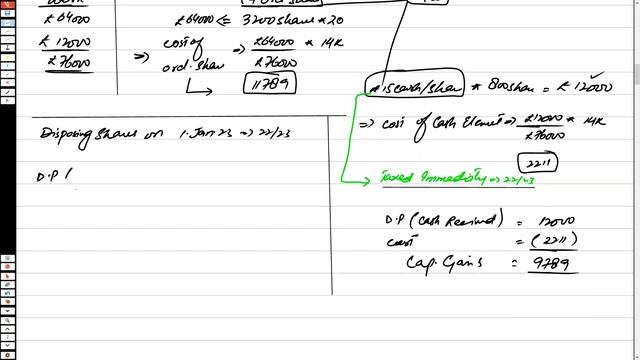 £64000 <= 3200 share * 20
£64000
£12000
£76000
=> cost of ord. share => £64000 / £76000 * 14K
11789
*15 cash/share * 800 share = £12000
=> cost of Cash Element => £12000 / £76000 * 14K
2211
Taxed Immediatly => 22/23
Disposing shares on 1. Jan 23 => 22/23
D.P (
D.P (Cash Received) = 12000
cost = (2211)
Cap. Gains = 9789